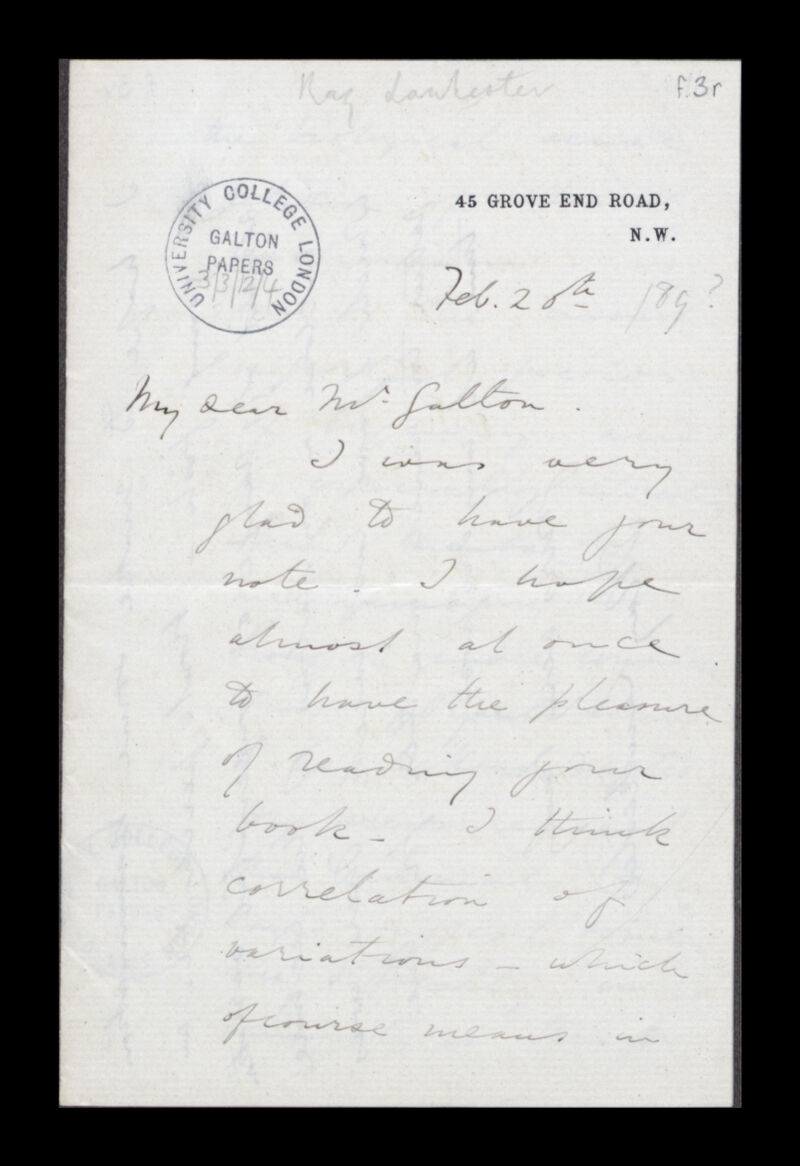 Ray Lankester
f.3r
UNIVERSITY COLLEGE LONDON
GALTON
PAPERS
3/3/12/4
45 GROVE END ROAD,
N.W.
Feb. 20th 189?
My dear Mr. Galton.
I was very
glad to have your
note. I hope
almost at once
to have the pleasure
of reading your
book - I think
correlation of
variations - which
of course means in